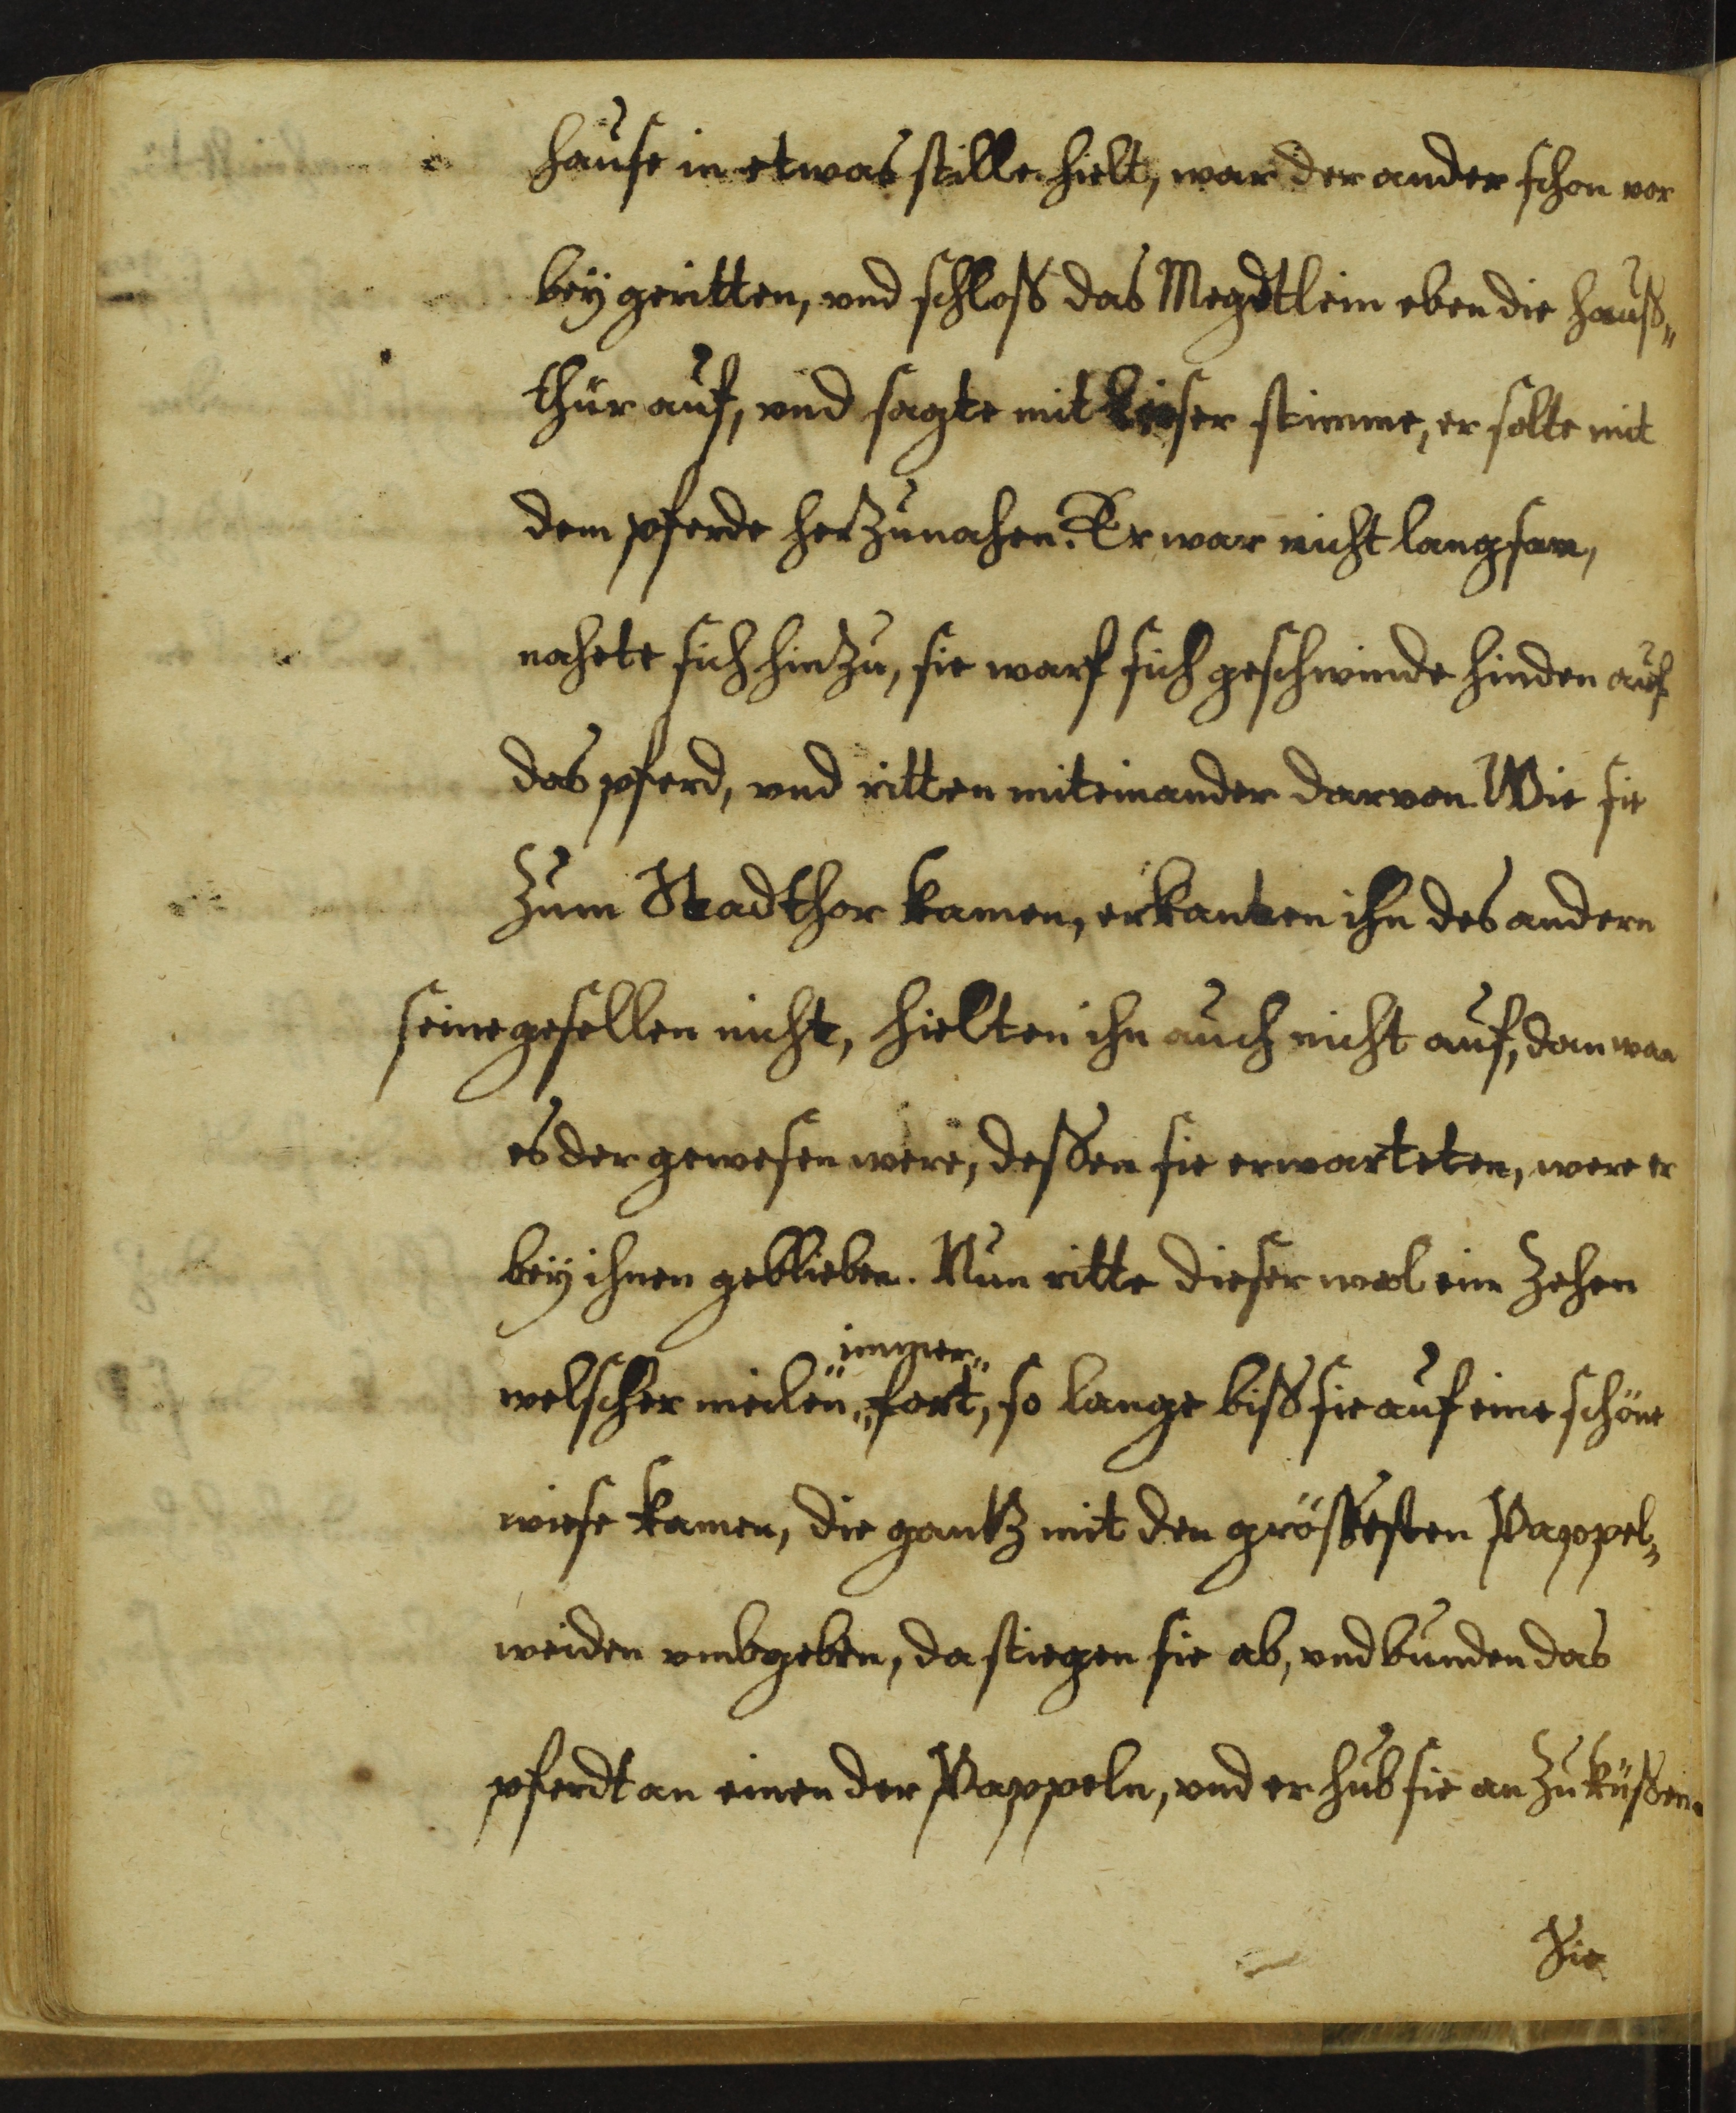 hause in etwas stille hielt, war der ander schon vor
bey geritten, vnd schloß das Megdtlein eben die hauß„
thür auf, vnd sagte mit leiser stimme, er solte mit
dem pferde herzunahen. Er war nicht langsam,
nahete sich hinzu, sie warf sich geschwinde hinden auf
das pferd, vnd ritten miteinander darvon. Wie sie
zum Stadthor kamen, erkanten ihn des andern
seine gesellen nicht, hielten ihn auch nicht auf, dan wan
es der gewesen were, deßen sie erwarteten, were er
bey ihnen geblieben. Nun ritte dieser wol ein zehen
immer„
welscher meilen „fort, so lange biß sie auf eine schöne
wiese kamen, die gantz mit den größesten Pappel„
weiden vmbgeben, da stiegen sie ab, vnd bunden das
pferdt an einen der Pappeln, vnd er hub sie an zu küßen.
Sie